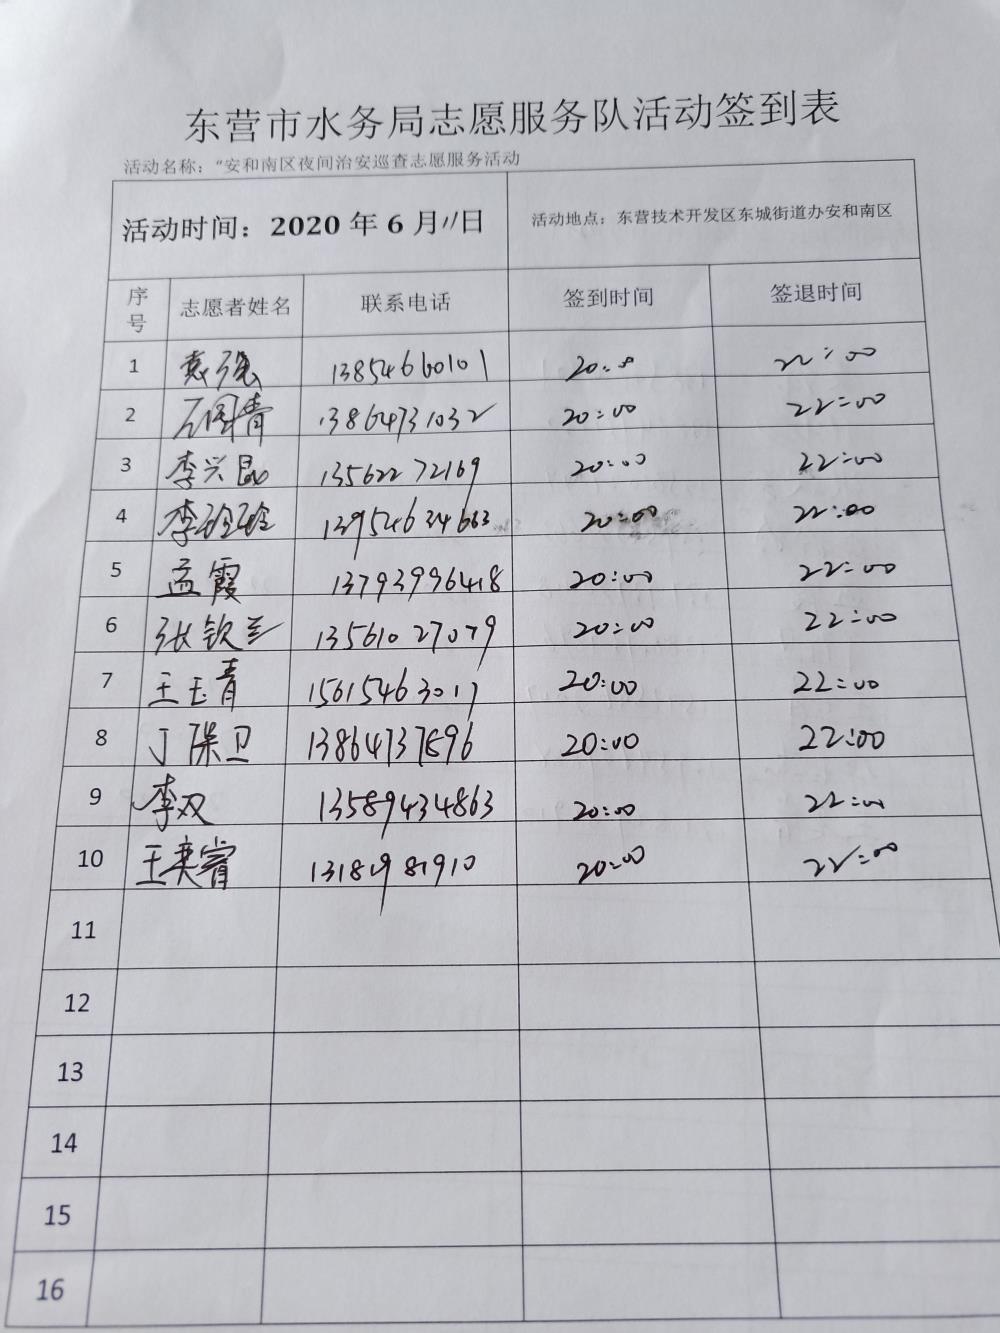 东营市水务局志愿服务队活动签到表
活动名称：“安和南区夜间治安巡查志愿服务活动
活动时间：2020年6月11日 活动地点：东营技术开发区东城街道办安和南区
序号 志愿者姓名 联系电话 签到时间 签退时间
1 袁强 13854660101 20:0 22:00
2 13864731032 20:00 22:00
3 李兴昆 13562272169 20:00 22:00
4 李玲玲 13954634663 20:00 22:00
5 孟霞 13793996418 20:00 22:00
6 张钦兰 13561027079 20:00 22:00
7 王玉青 15615463017 20:00 22:00
8 丁保卫 13864737896 20:00 22:00
9 李双 13589434863 20:00 22:00
10 王奕睿 13181981910 20:00 22:00
11
12
13
14
15
16